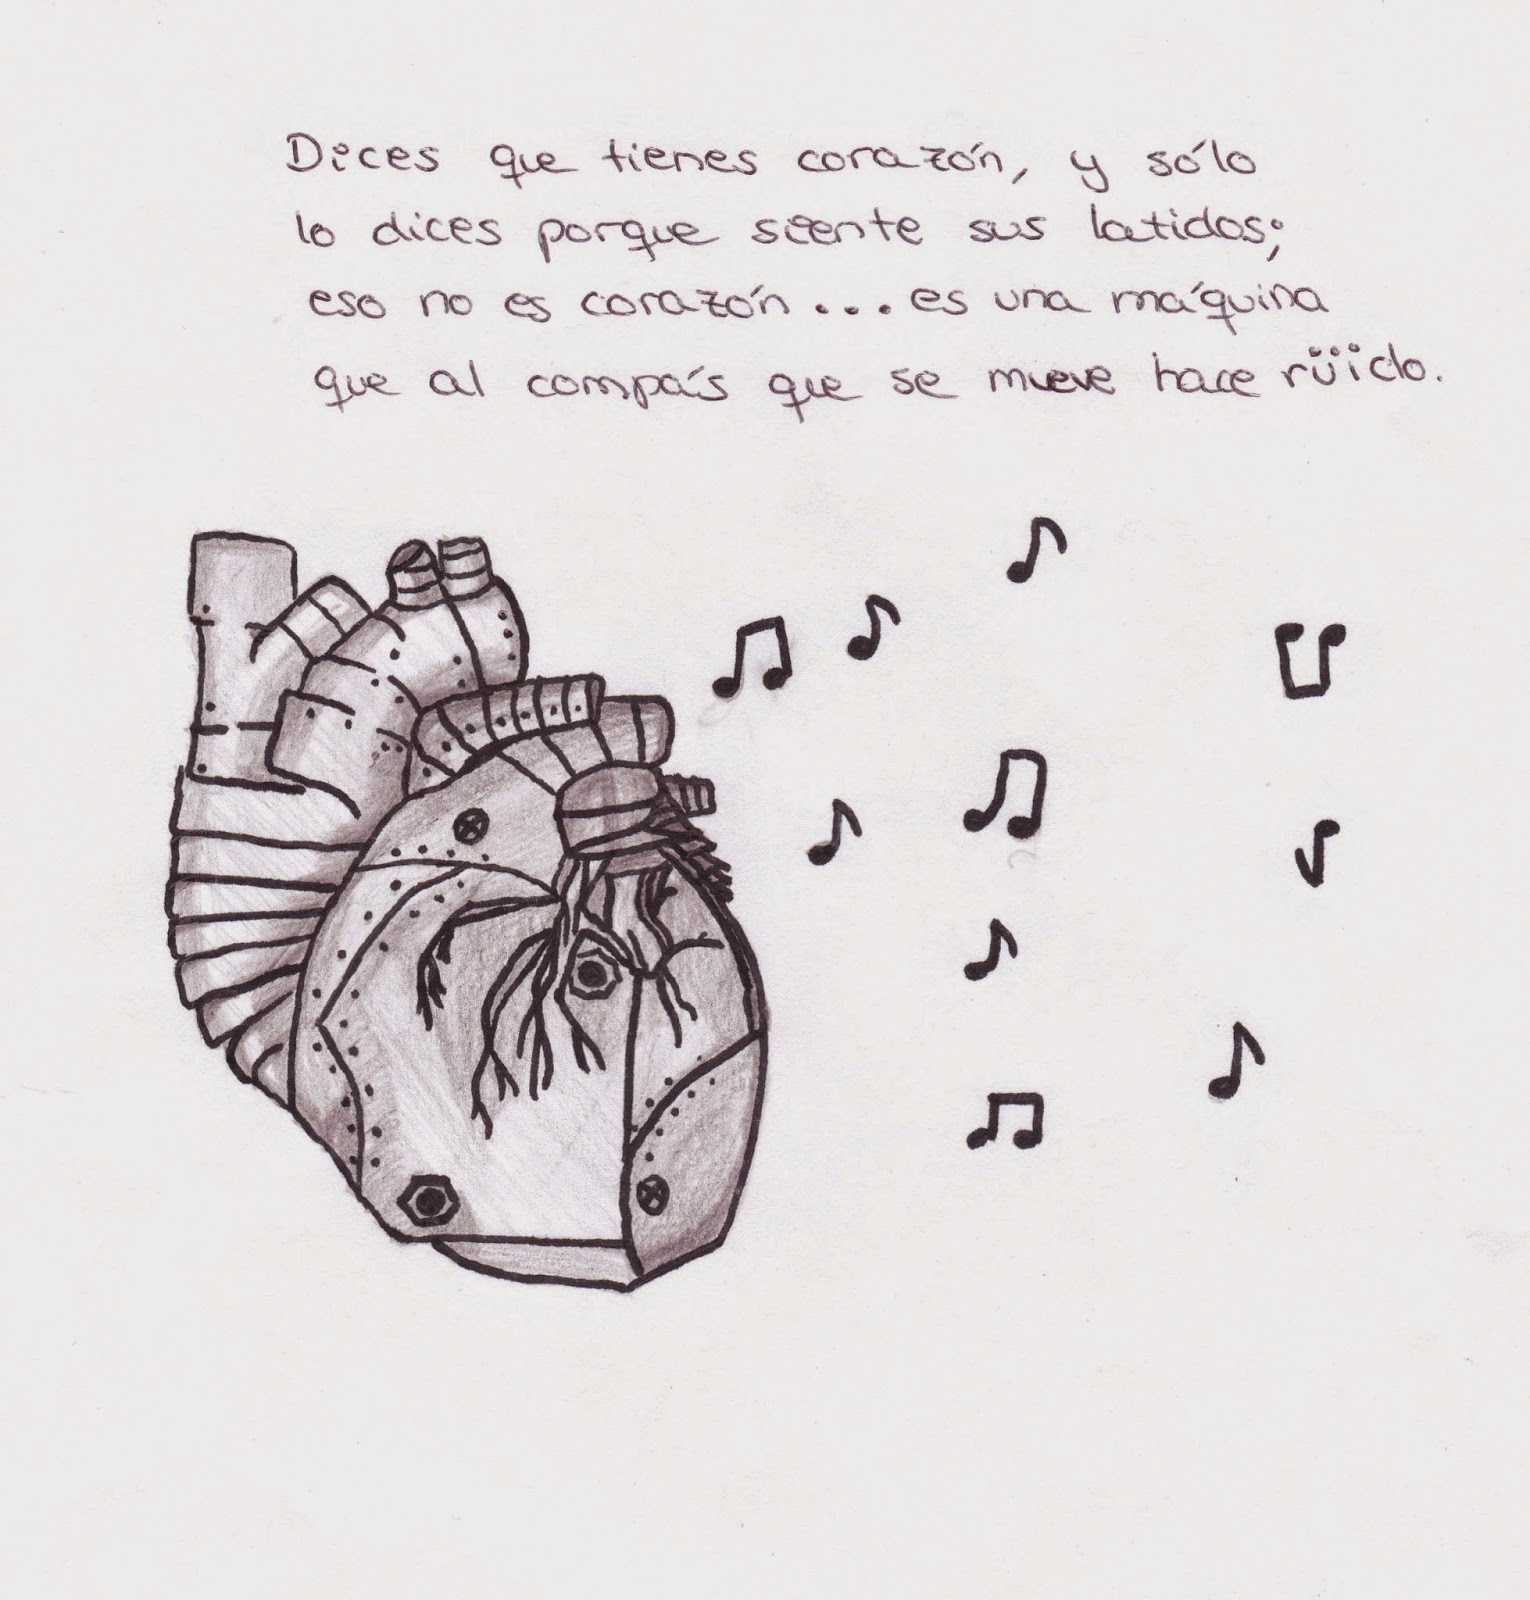 Dices que tienes corazón, y sólo
lo dices porque siente sus latidos;
eso no es corazón... es una máquina
que al compás que se mueve hace rüido.